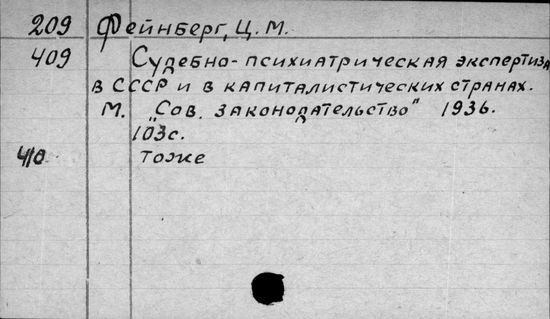 209 Фейнберг, Ц. М.
409 Судебно-психиатрическая экспертиза
в СССР и в капиталистических странах.
М. „Сов. законодательство" 1936.
103с.
410 Тоже